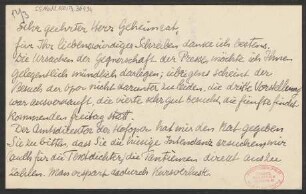 Sehr geehrter Herr Geheimrat,
für Ihr liebenswürdiges Schreiben danke ich bestens.
Die Ursachen der Gegnerschaft der Presse möchte ich Ihnen
gelegentlich mündlich darlegen; übrigens scheint der
Besuch der Oper nicht darunter zu leiden, die dritte Vorstellung
war ausverkauft, die vierte sehr gut besucht, die fünfte findet
kommenden Freitag statt.
Der Amtsdirektor der Hofoper hat mir den Rat gegeben
Sie zu bitten, dass Sie die hiesige Intendanz ersuchen, mir
auch für die Textdichter, die Tantiemen direkt auszu-
zahlen. Man erspart dadurch Kursverluste.